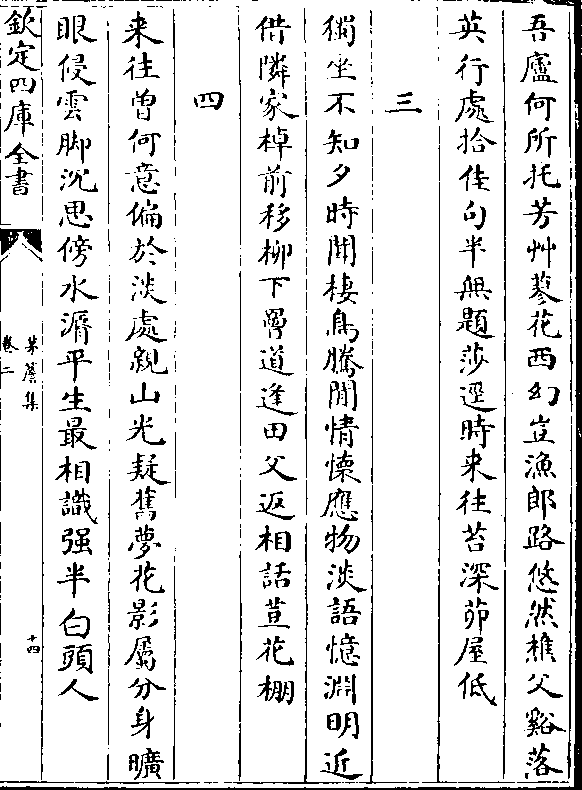 吾廬何所托芳艸蓼花西幻豈漁郎路悠然樵父谿落
英行處拾佳句半無題莎逕時来往苔深茆屋低
三
獨坐不知夕時聞棲鳥騰閒情懐應物淡語憶淵明近
借隣家棹前移柳下罾道逢田父返相話荳花棚
四
来往曽何意偏於淡處親山光疑舊夢花影屬分身曠
眼侵雲脚沉思傍水漘平生最相識强半白頭人
欽定四庫全書
茅簷集
卷二
十四